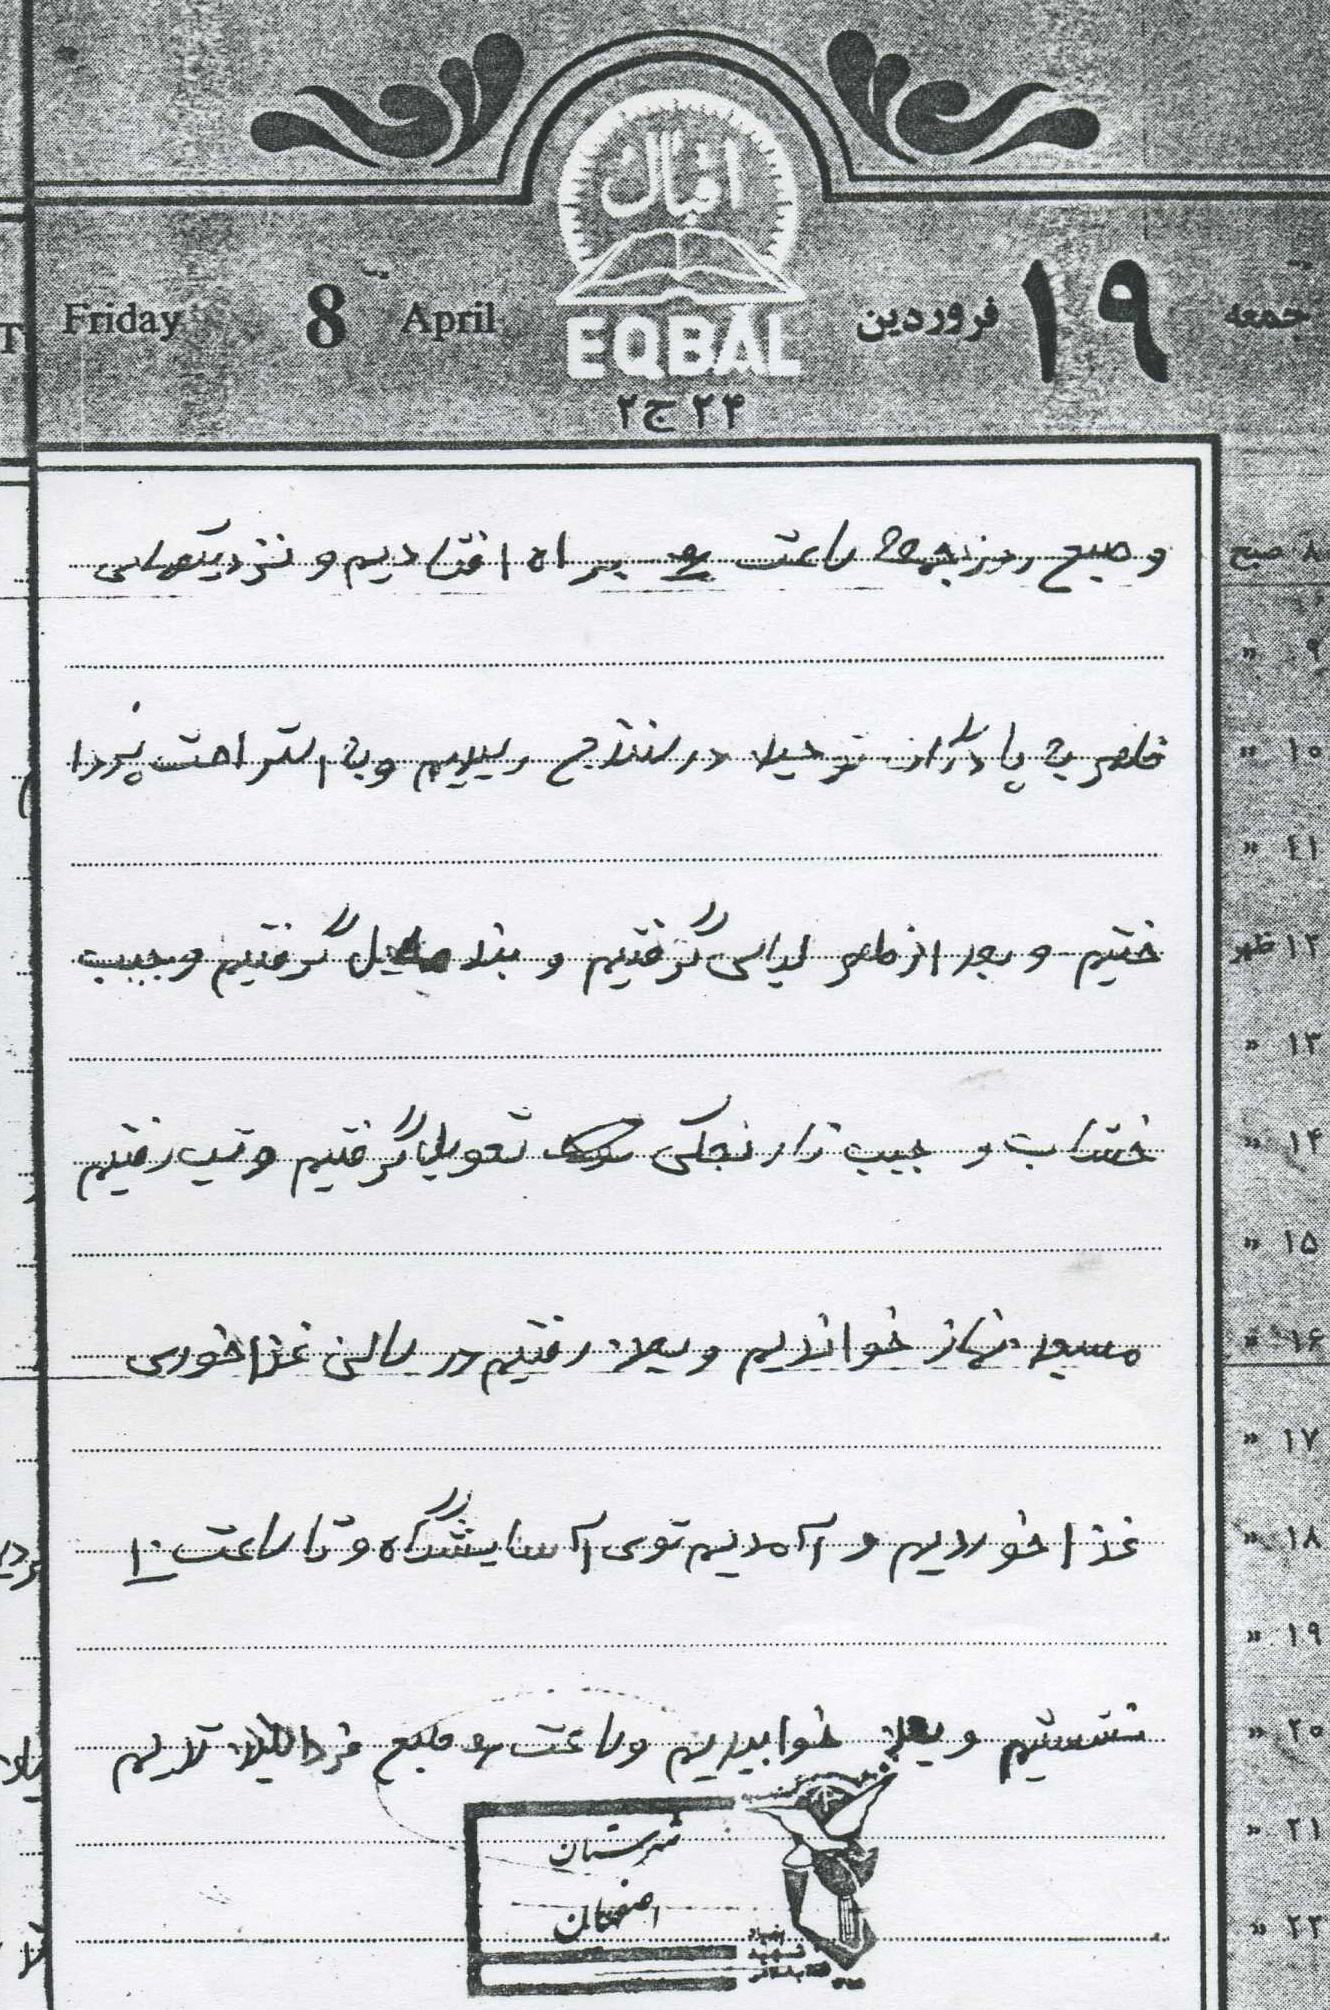 اقبال
جمعه ۱۹ فروردین
Friday 8 April
EQBAL
۲۴ ج ۲
۸ صبح
و صبح روز جمعه ساعت براه افتادیم و نزدیکهای
۹ »
۱۰ »
ظهر به پادگان توحید در سنندج رسیدیم و به استراحت پردا
۱۱ »
۱۲ ظهر
ختیم و بعد از ظهر لباس گرفتیم و بند حمایل گرفتیم و جیب
۱۳ »
۱۴ »
خشاب و جیب نارنجکی تحویل گرفتیم و شب رفتیم
۱۵ »
۱۶ »
مسجد نماز خواندیم و بعد رفتیم در سالن غذاخوری
۱۷ »
۱۸ »
غذا خوردیم و آمدیم توی آسایشگاه و تا ساعت ۱۰
۱۹ »
۲۰ »
نشستیم و بعد خوابیدیم و ساعت صبح فردا بیدار شدیم
۲۱ »
۲۲ »
شهرستان
اصفهان
بنیاد
شهید
انقلاب اسلامی